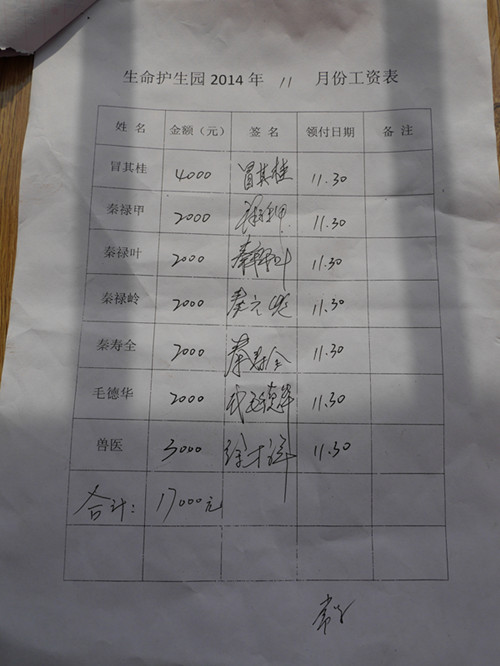 生命护生园 2014 年 11 月份工资表
姓 名 金额（元） 签 名 领付日期 备 注
冒其桂 4000 冒其桂 11.30
秦禄甲 2000 11.30
秦禄叶 2000 11.30
秦禄岭 2000 11.30
秦寿全 2000 秦寿全 11.30
毛德华 2000 11.30
兽医 3000 11.30
合计: 17000元